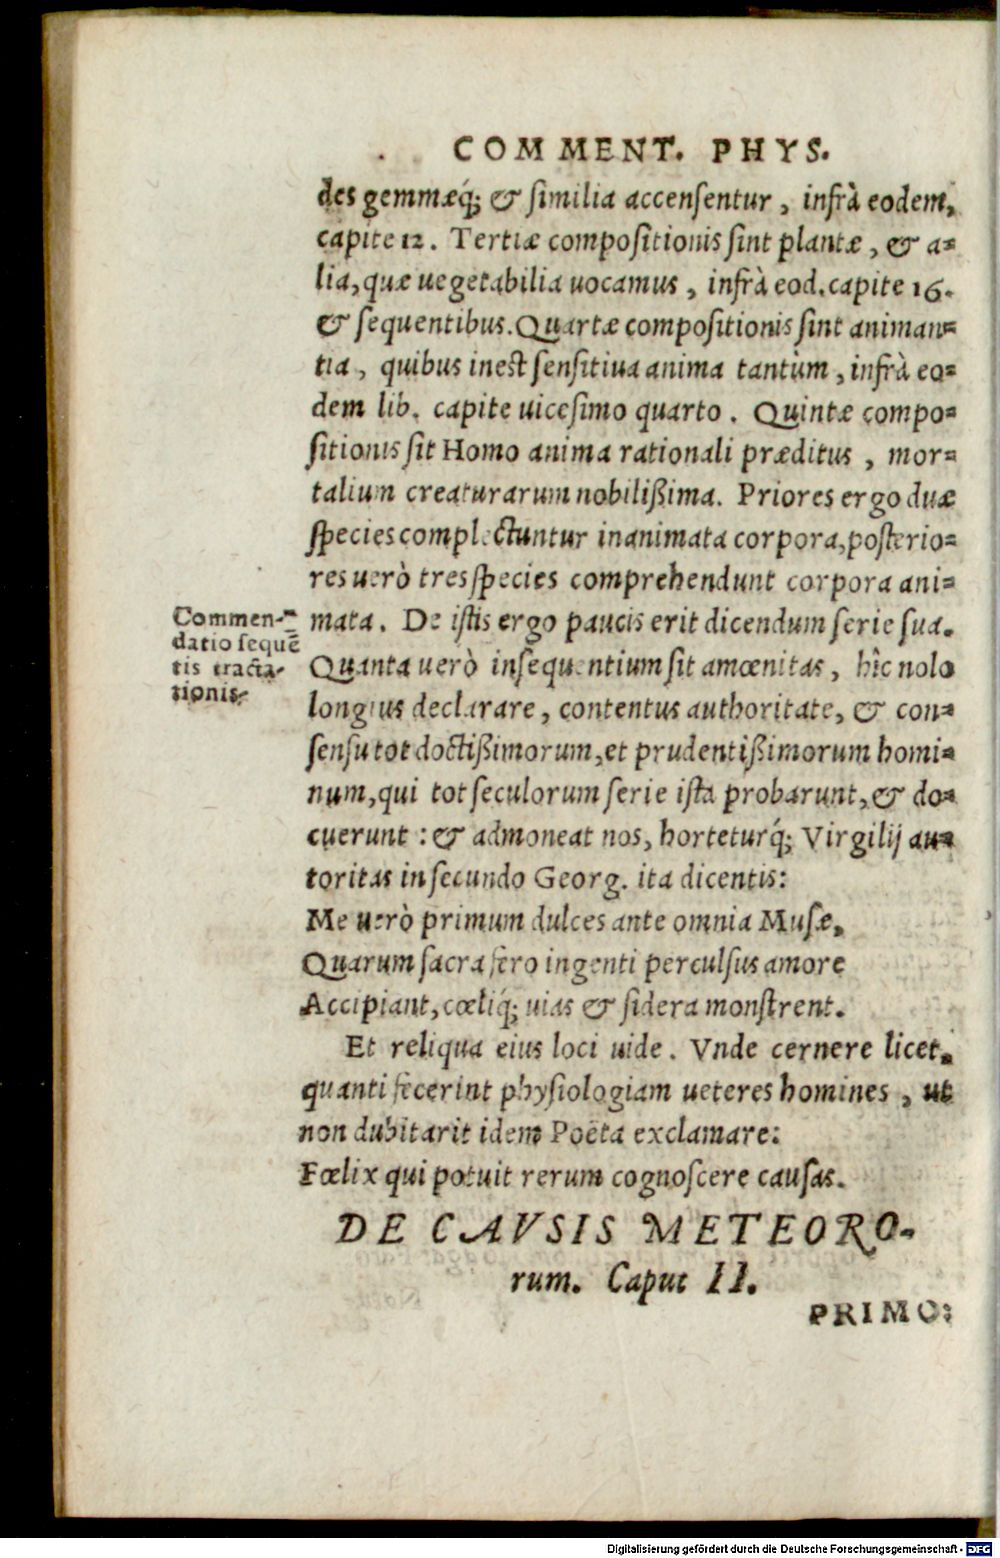 COMMENT. PHYS.
des gemmæq́; & ſimilia accenſentur, infrà eodem,
capite 12. Tertiæ compoſitionis ſint plantæ, & a-
lia, quæ uegetabilia uocamus, infrà eod. capite 16.
& ſequentibus. Quartæ compoſitionis ſint animan-
tia, quibus ineſt ſenſitiua anima tantùm, infrà eo-
dem lib. capite uiceſimo quarto. Quintæ compo-
ſitionis ſit Homo anima rationali præditus, mor-
talium creaturarum nobilißima. Priores ergo duæ
ſpecies complectuntur inanimata corpora, poſterio-
res uerò tres ſpecies comprehendunt corpora ani-
mata. De iſtis ergo paucis erit dicendum ſerie ſua.
Commen-
datio ſequē
tis tracta-
tionis.
Quanta uerò inſequentium ſit amœnitas, hîc nolo
longius declarare, contentus authoritate, & con-
ſenſu tot doctißimorum, et prudentißimorum homi-
num, qui tot ſeculorum ſerie iſta probarunt, & do-
cuerunt: & admoneat nos, horteturq́; Virgilij au-
toritas in ſecundo Georg. ita dicentis:
Me uerò primum dulces ante omnia Muſæ,
Quarum ſacra fero ingenti perculſus amore
Accipiant, cœliq́; uias & ſidera monſtrent.
Et reliqua eius loci uide. Vnde cernere licet,
quanti fecerint phyſiologiam ueteres homines, ut
non dubitarit idem Poëta exclamare:
Fœlix qui potuit rerum cognoſcere cauſas.
DE CAVSIS METEORO-
rum. Caput II.
PRIMO:
Digitalisierung gefördert durch die Deutsche Forschungsgemeinschaft - DFG